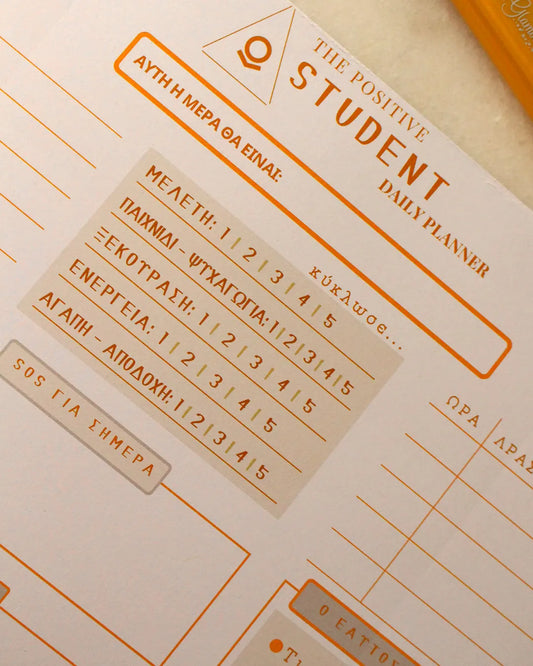 THE POSITIVE
STUDENT
DAILY PLANNER
ΑΥΤΗ Η ΜΕΡΑ ΘΑ ΕΙΝΑΙ:
κύκλωσε...
ΜΕΛΕΤΗ: 1 | 2 | 3 | 4 | 5
ΠΑΙΧΝΙΔΙ – ΨΥΧΑΓΩΓΙΑ: 1 | 2 | 3 | 4 | 5
ΞΕΚΟΥΡΑΣΗ: 1 | 2 | 3 | 4 | 5
ΕΝΕΡΓΕΙΑ: 1 | 2 | 3 | 4 | 5
ΑΓΑΠΗ – ΑΠΟΔΟΧΗ: 1 | 2 | 3 | 4 | 5
SOS ΓΙΑ ΣΗΜΕΡΑ
ΩΡΑ